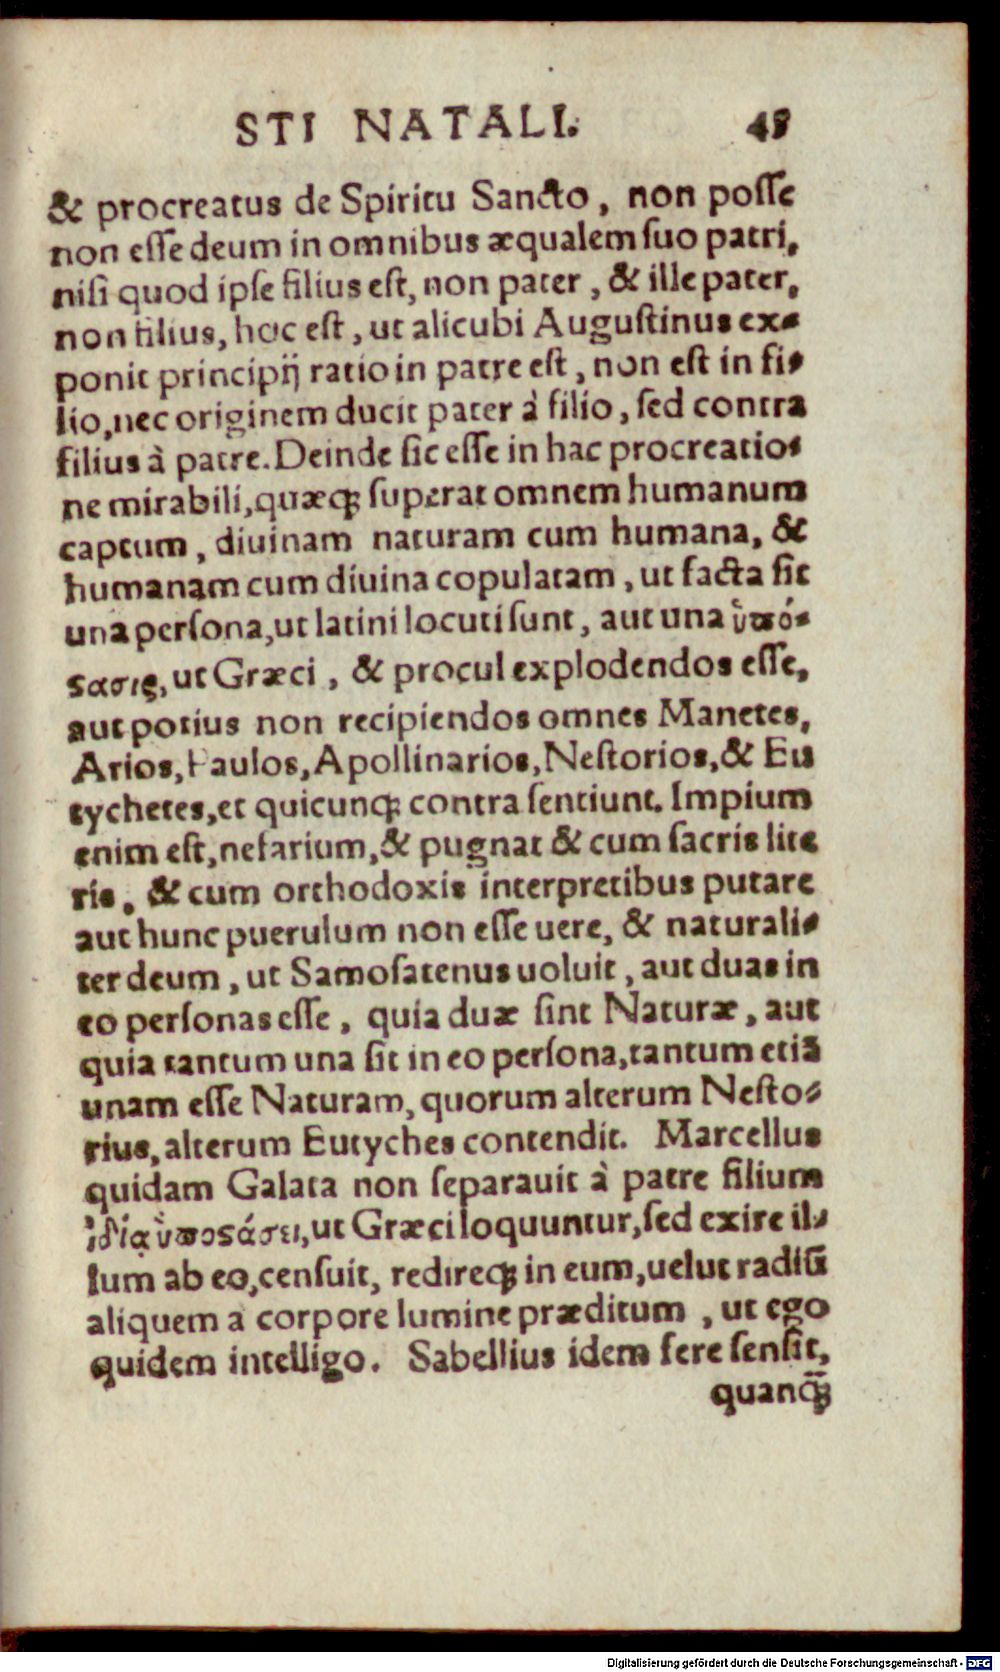 STI NATALI. 48
& procreatus de Spiritu Sancto, non posse
non esse deum in omnibus æqualem suo patri,
nisi quod ipse filius est, non pater, & ille pater,
non filius, hoc est, ut alicubi Augustinus ex-
ponit principij ratio in patre est, non est in fi-
lio, nec originem ducit pater à filio, sed contra
filius à patre. Deinde sic esse in hac procreatio-
ne mirabili, quæq; superat omnem humanum
captum, diuinam naturam cum humana, &
humanam cum diuina copulatam, ut facta sit
una persona, ut latini locuti sunt, aut una ὑπό-
ςασις, ut Græci, & procul explodendos esse,
aut potius non recipiendos omnes Manetes,
Arios, Paulos, Apollinarios, Nestorios, & Eu
tychetes, et quicunq; contra sentiunt. Impium
enim est, nefarium, & pugnat & cum sacris lite
ris, & cum orthodoxis interpretibus putare
aut hunc puerulum non esse uere, & naturali-
ter deum, ut Samosatenus uoluit, aut duas in
eo personas esse, quia duæ sint Naturæ, aut
quia tantum una sit in eo persona, tantum etiã
unam esse Naturam, quorum alterum Nesto-
rius, alterum Eutyches contendit. Marcellus
quidam Galata non separauit à patre filium
ἰδίᾳ ὑποςάσει, ut Græci loquuntur, sed exire il-
lum ab eo, censuit, redireq; in eum, uelut radiũ
aliquem a corpore lumine præditum, ut ego
quidem intelligo. Sabellius idem fere sensit,
quanq̃;
Digitalisierung gefördert durch die Deutsche Forschungsgemeinschaft - DFG